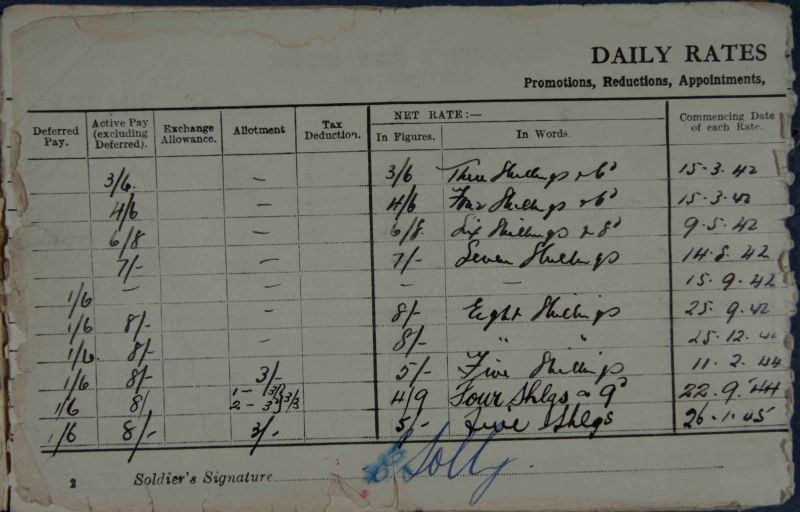 DAILY RATES
Promotions, Reductions, Appointments,
Deferred Pay. Active Pay (excluding Deferred). Exchange Allowance. Allotment Tax Deduction. NET RATE:— In Figures. In Words. Commencing Date of each Rate.
3/6. — 3/6 Three Shillings & 6d 15.3.42
4/6 — 4/6 Four Shillings & 6d 15.3.42
6/8 — 6/8 Six Shillings & 8d 9.5.42
7/- — 7/- Seven Shillings 14.8.42
1/6 — — — — 15.9.42
1/6 8/- — 8/- Eight Shillings 25.9.42
1/6. 8/- — 8/- " " 25.12.42
1/6 8/- 3/- 5/- Five Shillings 11.2.44
1/6 8/ 1 — 3/- 2 — 3d } 3/3 4/9 Four Shlgs & 9d 22.9.44
1/6 8/- 3/- 5/- Five Shlgs 26.1.45
2 Soldier's Signature Solly.